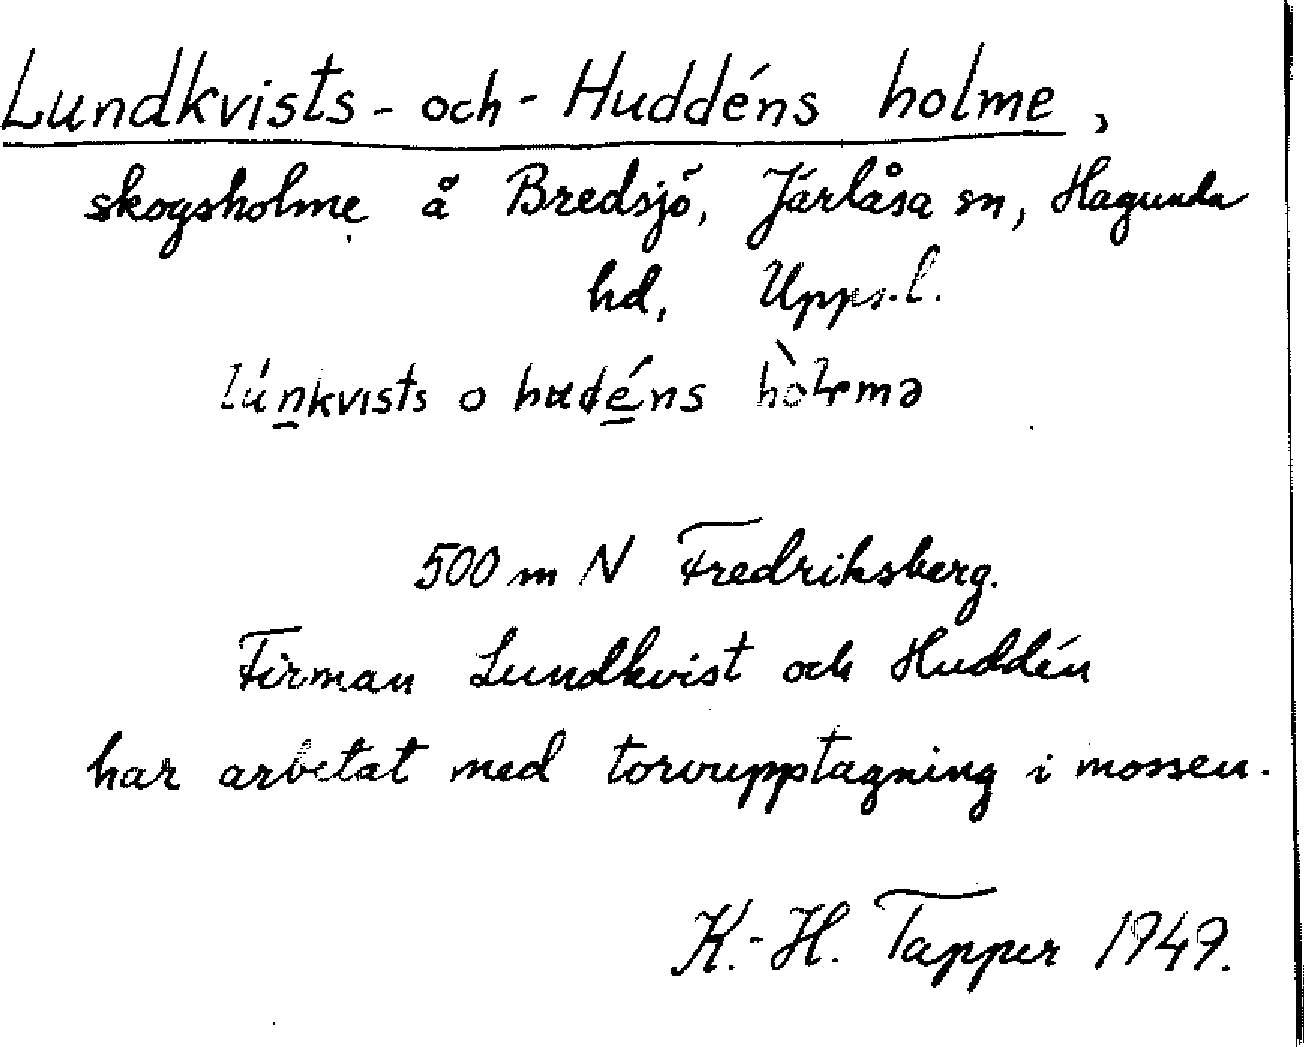 Lundkvists-och-Huddéns holme,
skogsholme å Bredsjö, Järlåsa sn, Hagunda
hd, Upps.l.
lúnkvists o hudéns hòlmə
500 m N Fredriksberg.
Firman Lundkvist och Huddén
har arbetat med torvupptagning i mossen.
K.-H. Tapper 1949.